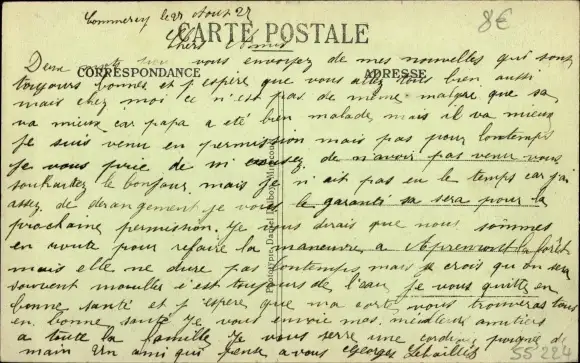 Commercy le 27 Août 27
8€
CARTE POSTALE
Chers Amis
Deux mots pour vous envoyez de mes nouvelles qui sont
CORRESPONDANCE
ADRESSE
toujours bonnes et j'espère que vous allez tous bien aussi
mais chez moi ce n'est pas de même malgré que sa
va mieux car papa a été bien malade mais il va mieux
je suis venu en permission mais pas pour longtemps
je vous prie de m'excusez de n'avoir pas venu vous
souhaitez le bonjour, mais je n'ait pas eu le temps car j'ai
assez de derangement je vous le garanti sa sera pour la
prochaine permission. Je vous dirais que nous sommes
en route pour refaire la manœuvre a Apremont la forêt
mais elle ne dure pas longtemps mais je crois qu'on sera
souvent mouillés c'est toujours de l'eau, je vous quitte en
bonne santé et j'espère que ma carte vous trouveras tous
en bonne santé Je vous envoie mes meilleurs amitiés
a toute la famille Je vous serre une cordiale poignée de
main Un ami qui pense a vous Georges
55.224